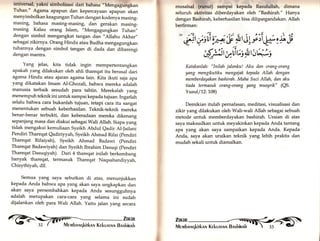 universal, yaksi simbolisasi dari bahasa "Mengagungkan
Tuhan." Agama apapun dan kepercayaan apapun akan
menyimbolkan keagungan Tuhan dengan kodenya masing-
masing, bahasa masing-masing, dan gerakan masing-
masing. Kalau orang Islam, "Mengagungkan Tuhan"
dengan simbol mengangkat tangan dan "Allahu Akbar"
sebagai zikirnya. Orang Hindu atau Budha mengagungkan
tuhannya dengan simbol tangan di dada dan dibarengi
dengan mantra.
Yang jelas, kita tidak ingin mempertentangkan
apakah yang dilakukan oleh ahli thareqat itu berasal dari
agama Hindu atau ajaran agama lain. Kita ikuti saja apa
yang dikatakan Imam Al-Ghozali, bahwa mereka adalah
manusia terbaik sesudah para nabi. Merekalah yang
menempuh teknik ini untuk sampai kepada tujuan. Ingatlah
selalu bahwa cara bukanlah tujuan, tetapi cara itu sangat
menentukan sebuah keberhasilan. Teknik-teknik mereka
benar-benar terbukti, dan kebenaran mereka dikenang
sepanjang masa dan diakui sebagai Wali Allah. Siapa yang
tidak mengakui kemuliaan Syeikh Abdul Qadir Al-Jailani
Pendiri Thareqat Qadiriyyah, Syeikh Ahmad Rifai (Pendiri
Thareqat Rifaiyah), Syeikh Ahmad Badawi (Pendiri
Thareqat Badawiyah) dan Syeikh Ibrahim Dasuqi (Pendiri
Thareqat Dasuqiyah). Dari 4 thareqat inilah berkembang
banyak thareqat, termasuk Thareqat Naqsabandiyyah,
Chisythiyah, dll.
Semua yang saya sebutkan di atas, menunjukkan
kepada Anda bahwa apa yang akan saya ungkapkan dan
akan saya persembahkan kepada Anda sesungguhnya
adalah merupakan cara-cara yang selama ini sudah
dijalankan oleh para Wali Allah. Yaitu jalan yang secara
ZIKIR
32 MEMBANGKITKAN KEKUATAN BASHIRAH
musalsal (runut) sampai kepada Rasulullah, dimana
seluruh aktivitas diberdayakan oleh "Bashirah." Hanya
dengan Bashirah, keberhasilan bisa dilipatgandakan. Allah
berfirman:
Katakanlah: "Inilah jalanku: Aku dan orang-orang
yang mengikutiku mengajak kepada Allah dengan
memberdayakan bashirah. Maha Suci Allah, dan aku
tiada termasuk orang-orang yang musyrik" (QS.
Yusuf/12: 108)
Demikian itulah pemaknaan, meditasi, visualisasi dan
zikir yang dilakukan oleh Wali-wali Allah sebagai sebuah
metode untuk memberdayakan bashirah. Uraian di atas
saya maksudkan untuk meyakinkan kepada Anda tentang
apa yang akan saya sampaikan kepada Anda. Kepada
Anda, saya akan uraikan teknik yang lebih praktis dan
mudah sekali untuk diamalkan.
ZIKIR
MEMBANGKITKAN KEKUATAN BASHIRAH 33